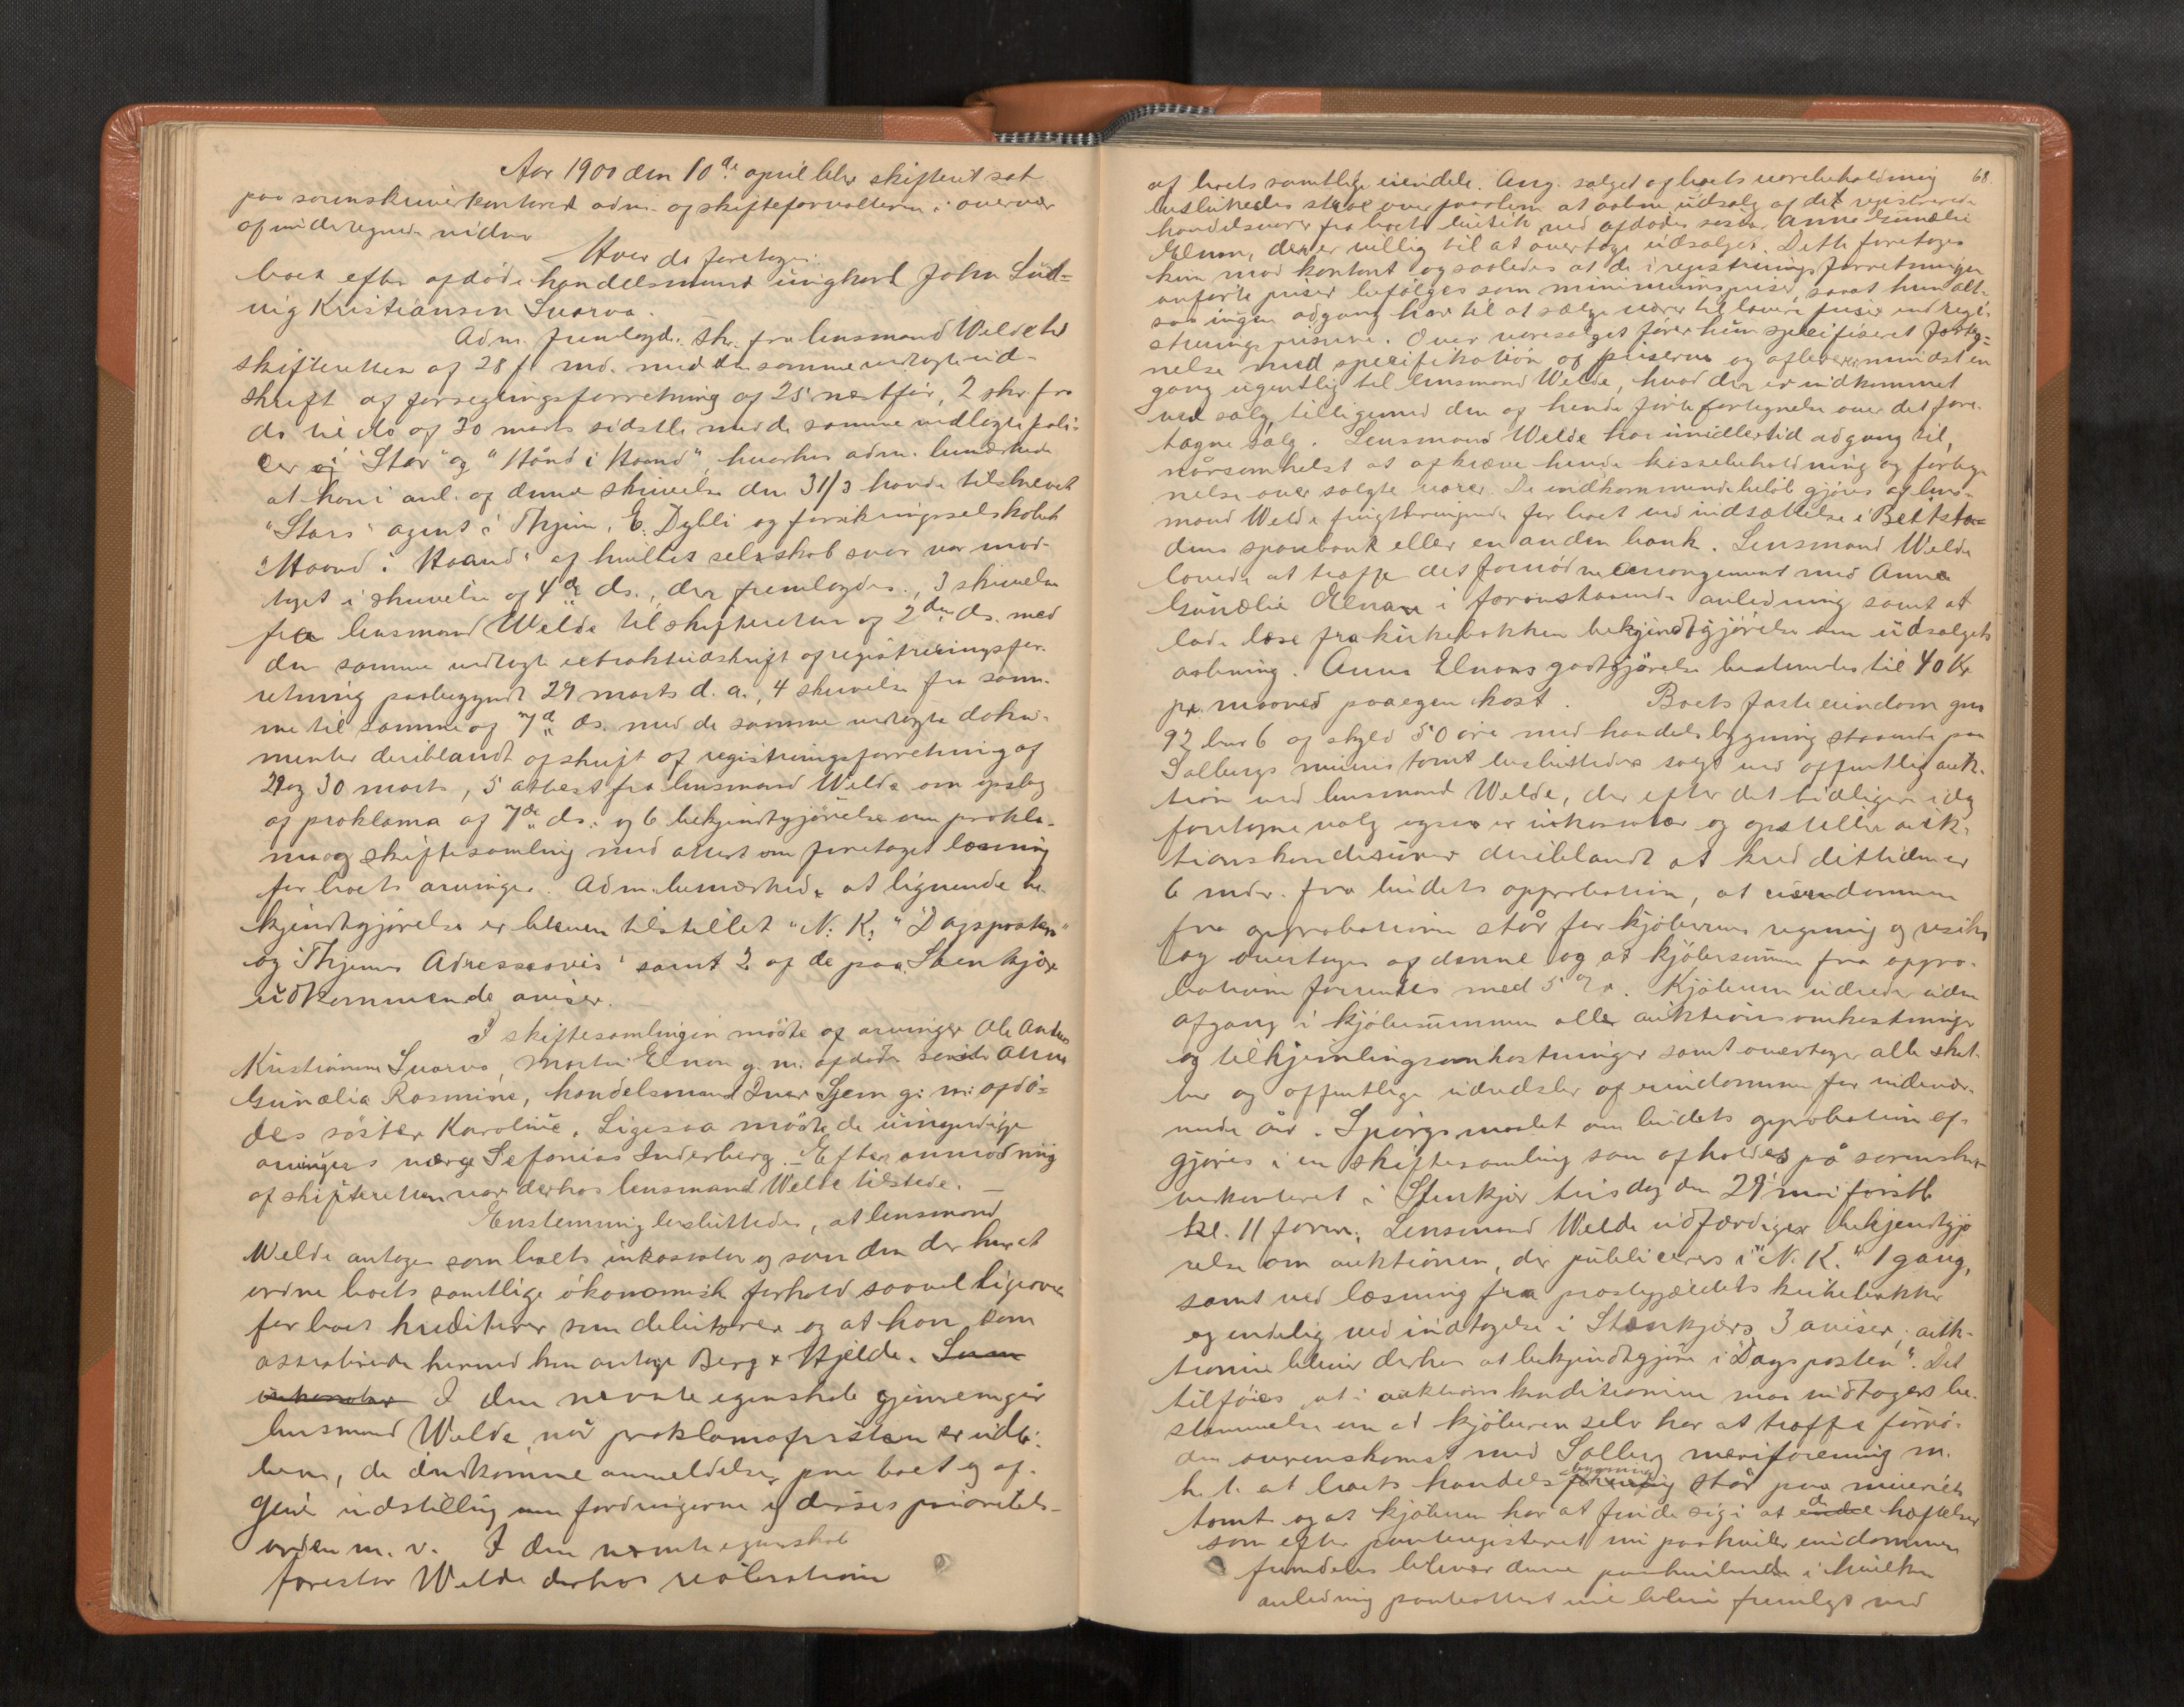 Aar 1900 den 10de april blev skifteret sat
paa sorenskriverkontoret adm. af skifteforvalteren i overvær
af undertegnede vidner
Hvor da foretoges:
boet efter afdøde handelsmand ungkarl John Lud=
vig Kristiansen Svarva.
Adm. fremlagde 1 skr. fra lensmand Welde til
skifteretten af 28 f. md. med den samme vedlagte ud-
skrift af forseglingsforretning af 25 næstfør, 2 skr. fra
do til do af 30 marts sidstl. med de samme vedlagte poli-
cer i "Star" og "Haand i Haand", hvorhos adm. bemærkede
at han i anl. af denne skrivelse den 31/3 havde tilskrevet
"Stars" agent i Thjem, E. Dybli og forsikringsselskabet
"Haand i Haand" af hvilket selskab svar var mod-
taget i skrivelse af 4de ds., der fremlagdes, 3 skrivelse
fra lensmand Welde til skifteretten af 2den ds. med
den samme vedlagte extraktudskrift af registreringsfor-
retning paabegyndt 29 marts d. a., 4 skrivelse fra sam-
me til samme af 7de ds. med de samme vedlagte doku-
menter deriblandt afskrift af registreringsforretning af
29 og 30 marts, 5 attest fra lensmand Welde om opslag
af proklama af 7de ds. og 6 bekjendtgjørelse om prokla-
ma og skiftesamling med attest om foretaget læsning
for boets arvinger. Adm. bemærkede at lignende be-
kjendtgjørelse er bleven tilstillet "N. K." "Dagsposten"
og Thjems Adresseavis samt 2 af de paa Stenkjær
udkommende aviser.
I skiftesamlingen mødte af arvinger Ole Anton
Kristiansen Svarva, Martin Elnan g. m. afdødes søster Anna
Gunælia Rosmine, handelsmand Iver Sjem g. m. afdø=
des søster Karoline. Ligesaa mødte de umyndige
arvingers værge Sefanias Inderberg. Efter anmodning
af skifteretten var derhos lensmand Welde tilstede.
Enstemmig besluttedes, at lensmand
Welde antages som boets inkassator og som den der har at
ordne boets samtlige økonomiske forhold saavel ligeover
for boets kreditorer som debitorer og at han som
assisterende hermed kan antage Berg & Hjelde. Som
inkassator I den nævnte egenskab gjennemgaar
lensmand Welde, naar proklamafristen er udlø-
ben, de indkomne anmeldelser paa boet og af-
giver indstilling om fordringerne og disses prioritets-
orden m. v. I den nævnte egenskab
forestaar Welde derhos realisationen
68.
af boets samtlige eiendele. Ang. salget af boets varebeholdning
besluttedes straks over paasken at aabne udsalg af de registrerede
handelsvarer fra boets butik ved afdødes søster Anna Gunælie
Elnan, der er villig til at overtage udsalget. Dette foretages
kun mod kontant og saaledes at de i registreringsforretningen
anførte priser befølges som minimumspriser, saa at hun alt-
saa ingen adgang har til at sælge varer til lavere priser end regi-
streringspriserne. Over varesalget fører hun specificeret forteg=
nelse med specifikation af priserne og afleverer mindst en
gang ugentlig til lensmand Welde, hvad der er indkommet
ved salg, tilligemed den af hende førte fortegnelse over det fore-
tagne salg. Lensmand Welde har imidlertid adgang til,
naarsomhelst at afkræve hende kassebeholdning og forteg-
nelse over solgte varer. De indkommende beløb gjøres af lens-
mand Welde frugtbringende for boet ved indsættelse i Beitsta-
dens sparebank eller en anden bank. Lensmand Welde
lovede at træffe det fornødne arrangement med Anna
Gunælie Elnan i foranstaaende anledning samt at
lade læse fra kirkebakken bekjendtgjørelse om udsalgets
aabning. Anna Elnans godtgjørelse bestemtes til 40 Kr
pr. maaned paa egen kost. Boets faste eiendom gno
92 bno 6 af skyld 50 øre med handelsbygning staaende paa
Solbergs meieris tomt besluttedes solgt ved offentlig auk-
tion ved lensmand Welde, der efter det tidligere idag
foretagne valg ogsaa er inkassator og opstiller auk-
tionskonditioner deriblandt at kredittiden er
6 mdr. fra budets approbation, at eiendommen
fra approbationen står for kjøberens regning og risiko
og overtages af denne og at kjøbesummen fra appro-
bationen forrentes med 5 %. Kjøberen udreder uden
afgang i kjøbesummen alle auktionsomkostninger
og tilhjemlingsomkostninger samt overtager alle skat-
ter og offentlige udredsler af eiendommen for indevær-
ende år. Spørgsmaalet om budets approbation af-
gjøres i en skiftesamling som afholdes på sorenskri-
verkontoret i Stenkjær tirsdag den 29 mai førstk.
kl. 11 form. Lensmand Welde udfærdiger bekjendtgjø-
relse om auktionen, der publiceres i "N. K." 1 gang,
samt ved læsning fra prestegjældets kirkebakker
og endelig ved indtagelse i Stenkjærs 3 aviser; auk-
tionen bliver derhos at bekjendtgjøre i "Dagsposten". Det
tilføies at i auktionskonditionerne maa indtages be-
stemmelse om at kjøberen selv har at træffe fornø-
den overenskomst med Solberg meieriforening m.
h. t. at boets handelsbygning står paa meieriets
tomt og at kjøberen har at finde sig i at de heftelser
som efter panteregisteret nu paahviler eiendommen
fremdeles bliver denne paahvilende i hvilken
anledning panteattest vil blive fremlagt ved